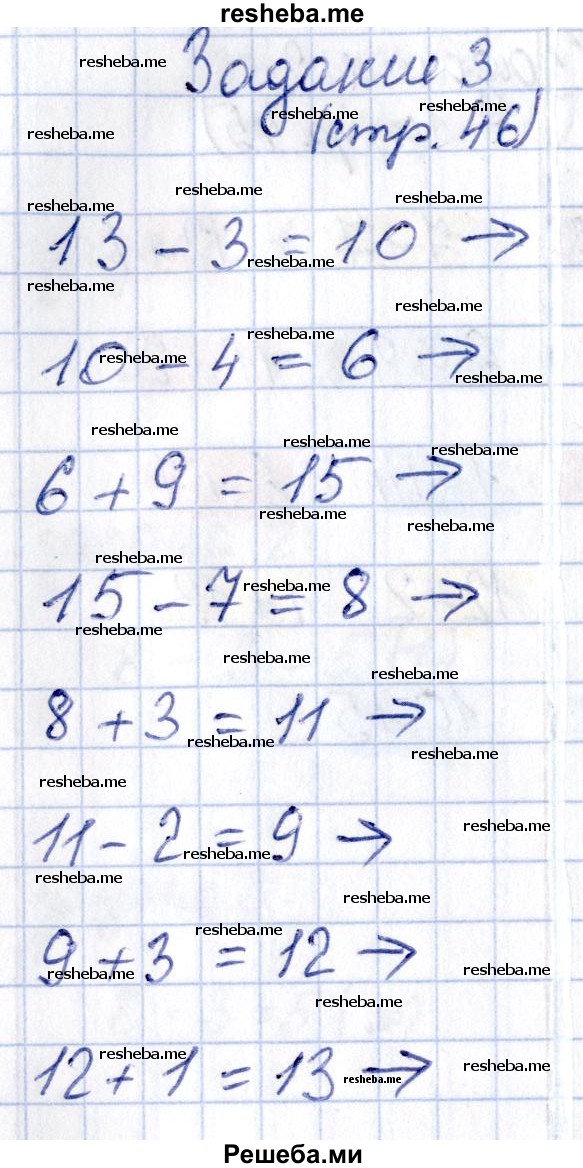 resheba.me
Задание 3
(стр. 46)
13 - 3 = 10 →
10 - 4 = 6 →
6 + 9 = 15 →
15 - 7 = 8 →
8 + 3 = 11 →
11 - 2 = 9 →
9 + 3 = 12 →
12 + 1 = 13 →
Решеба.ми